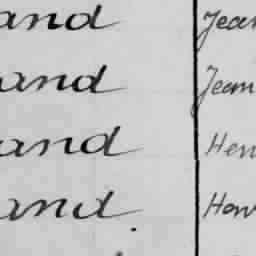 and Jean
and Jean
and Hen
and How